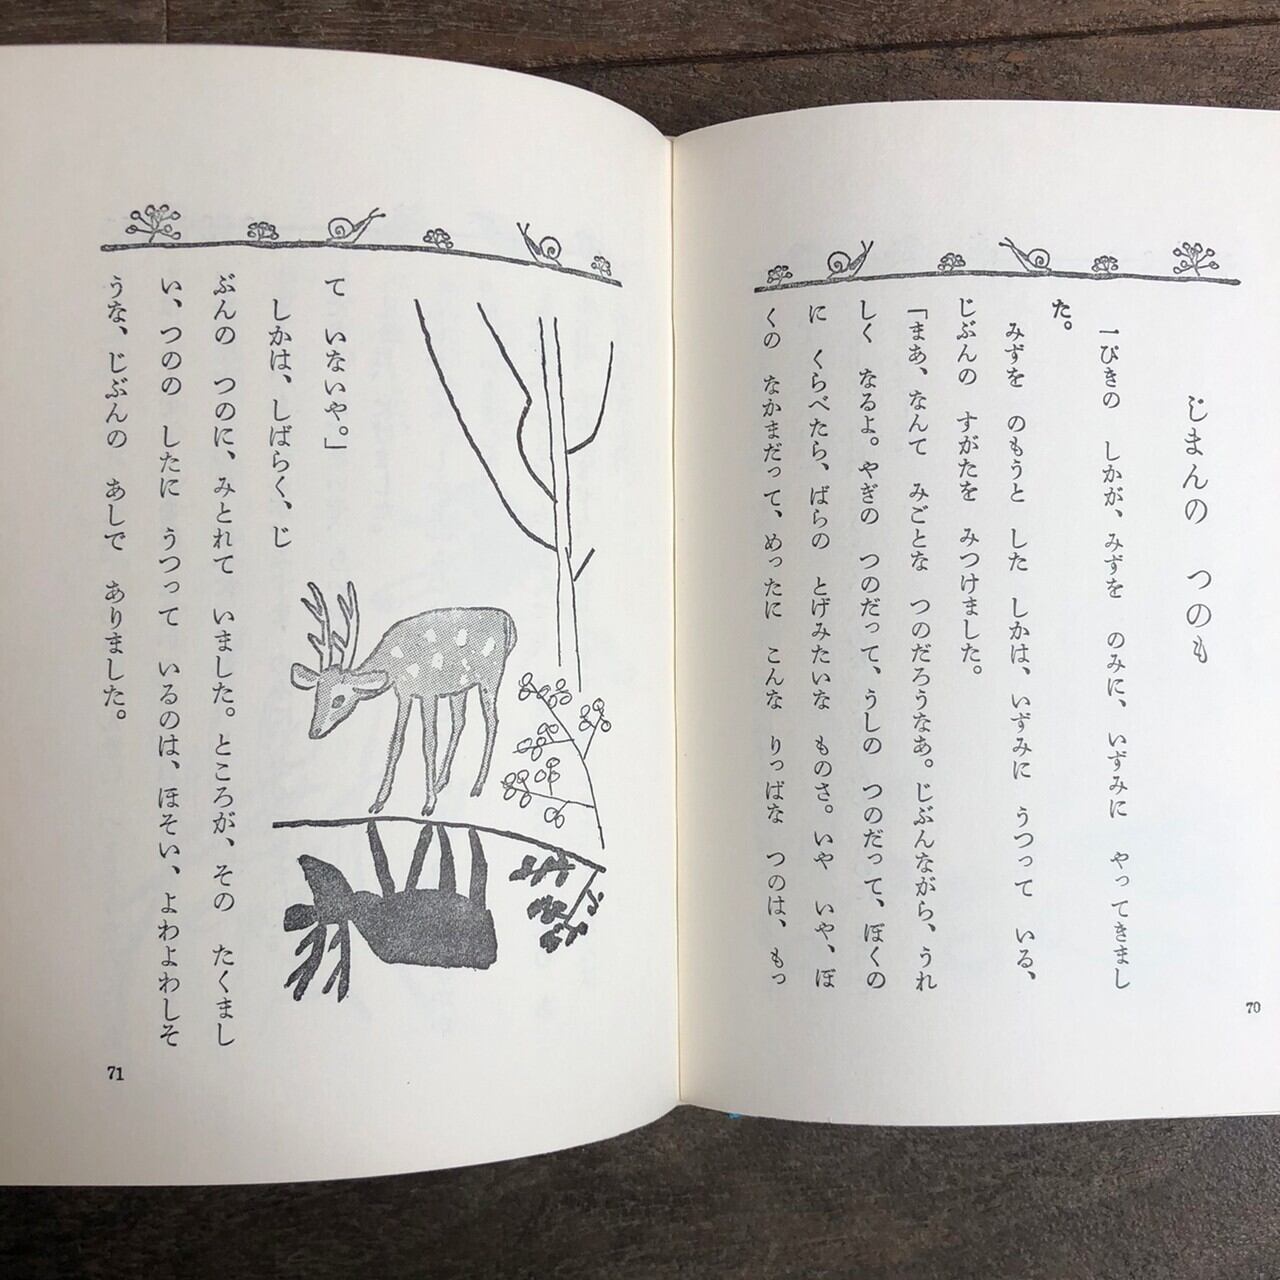 じまんの つのも
一ぴきの しかが、みずを のみに、いずみに やってきまし
た。
みずを のもうと した しかは、いずみに うつって いる、
じぶんの すがたを みつけました。
「まあ、なんて みごとな つのだろうなあ。じぶんながら、うれ
しく なるよ。やぎの つのだって、うしの つのだって、ぼくの
に くらべたら、ばらの とげみたいな ものさ。いや いや、ぼ
くの なかまだって、めったに こんな りっぱな つのは、もっ
70
て いないや。」
しかは、しばらく、じ
ぶんの つのに、みとれて いました。ところが、その たくまし
い、つのの したに うつって いるのは、ほそい、よわよわしそ
うな、じぶんの あしで ありました。
71